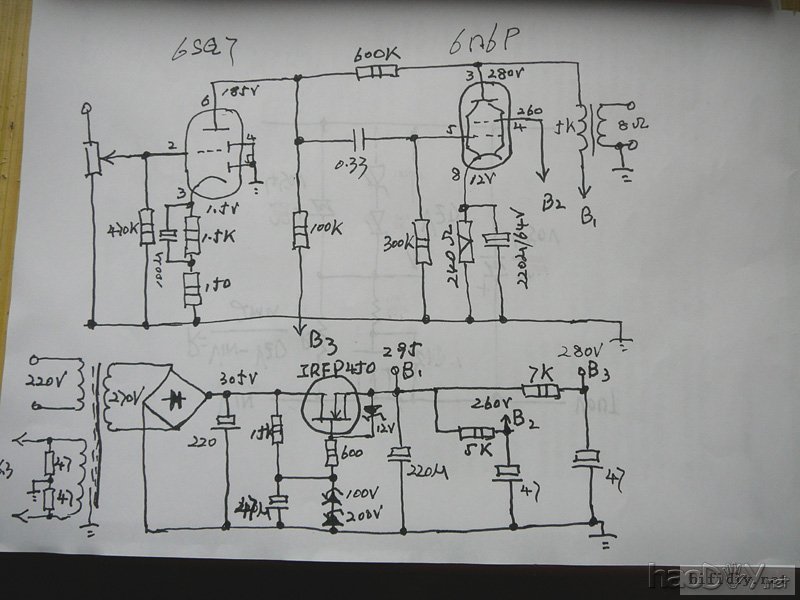 6SQ7
6П6P
600K
6
185V
3
280V
2
4
5
260
4
5K
8Ω
0.33
8
12V
3
1.5V
B2
B1
470K
100U
1.5K
150
100K
300K
240Ω
220U/64V
B3
220V
270V
305V
IRFP450
295
B1
7K
280V
B3
260V
B2
12V
15K
600
5K
220
220M
47
47
100V
200V
47
47